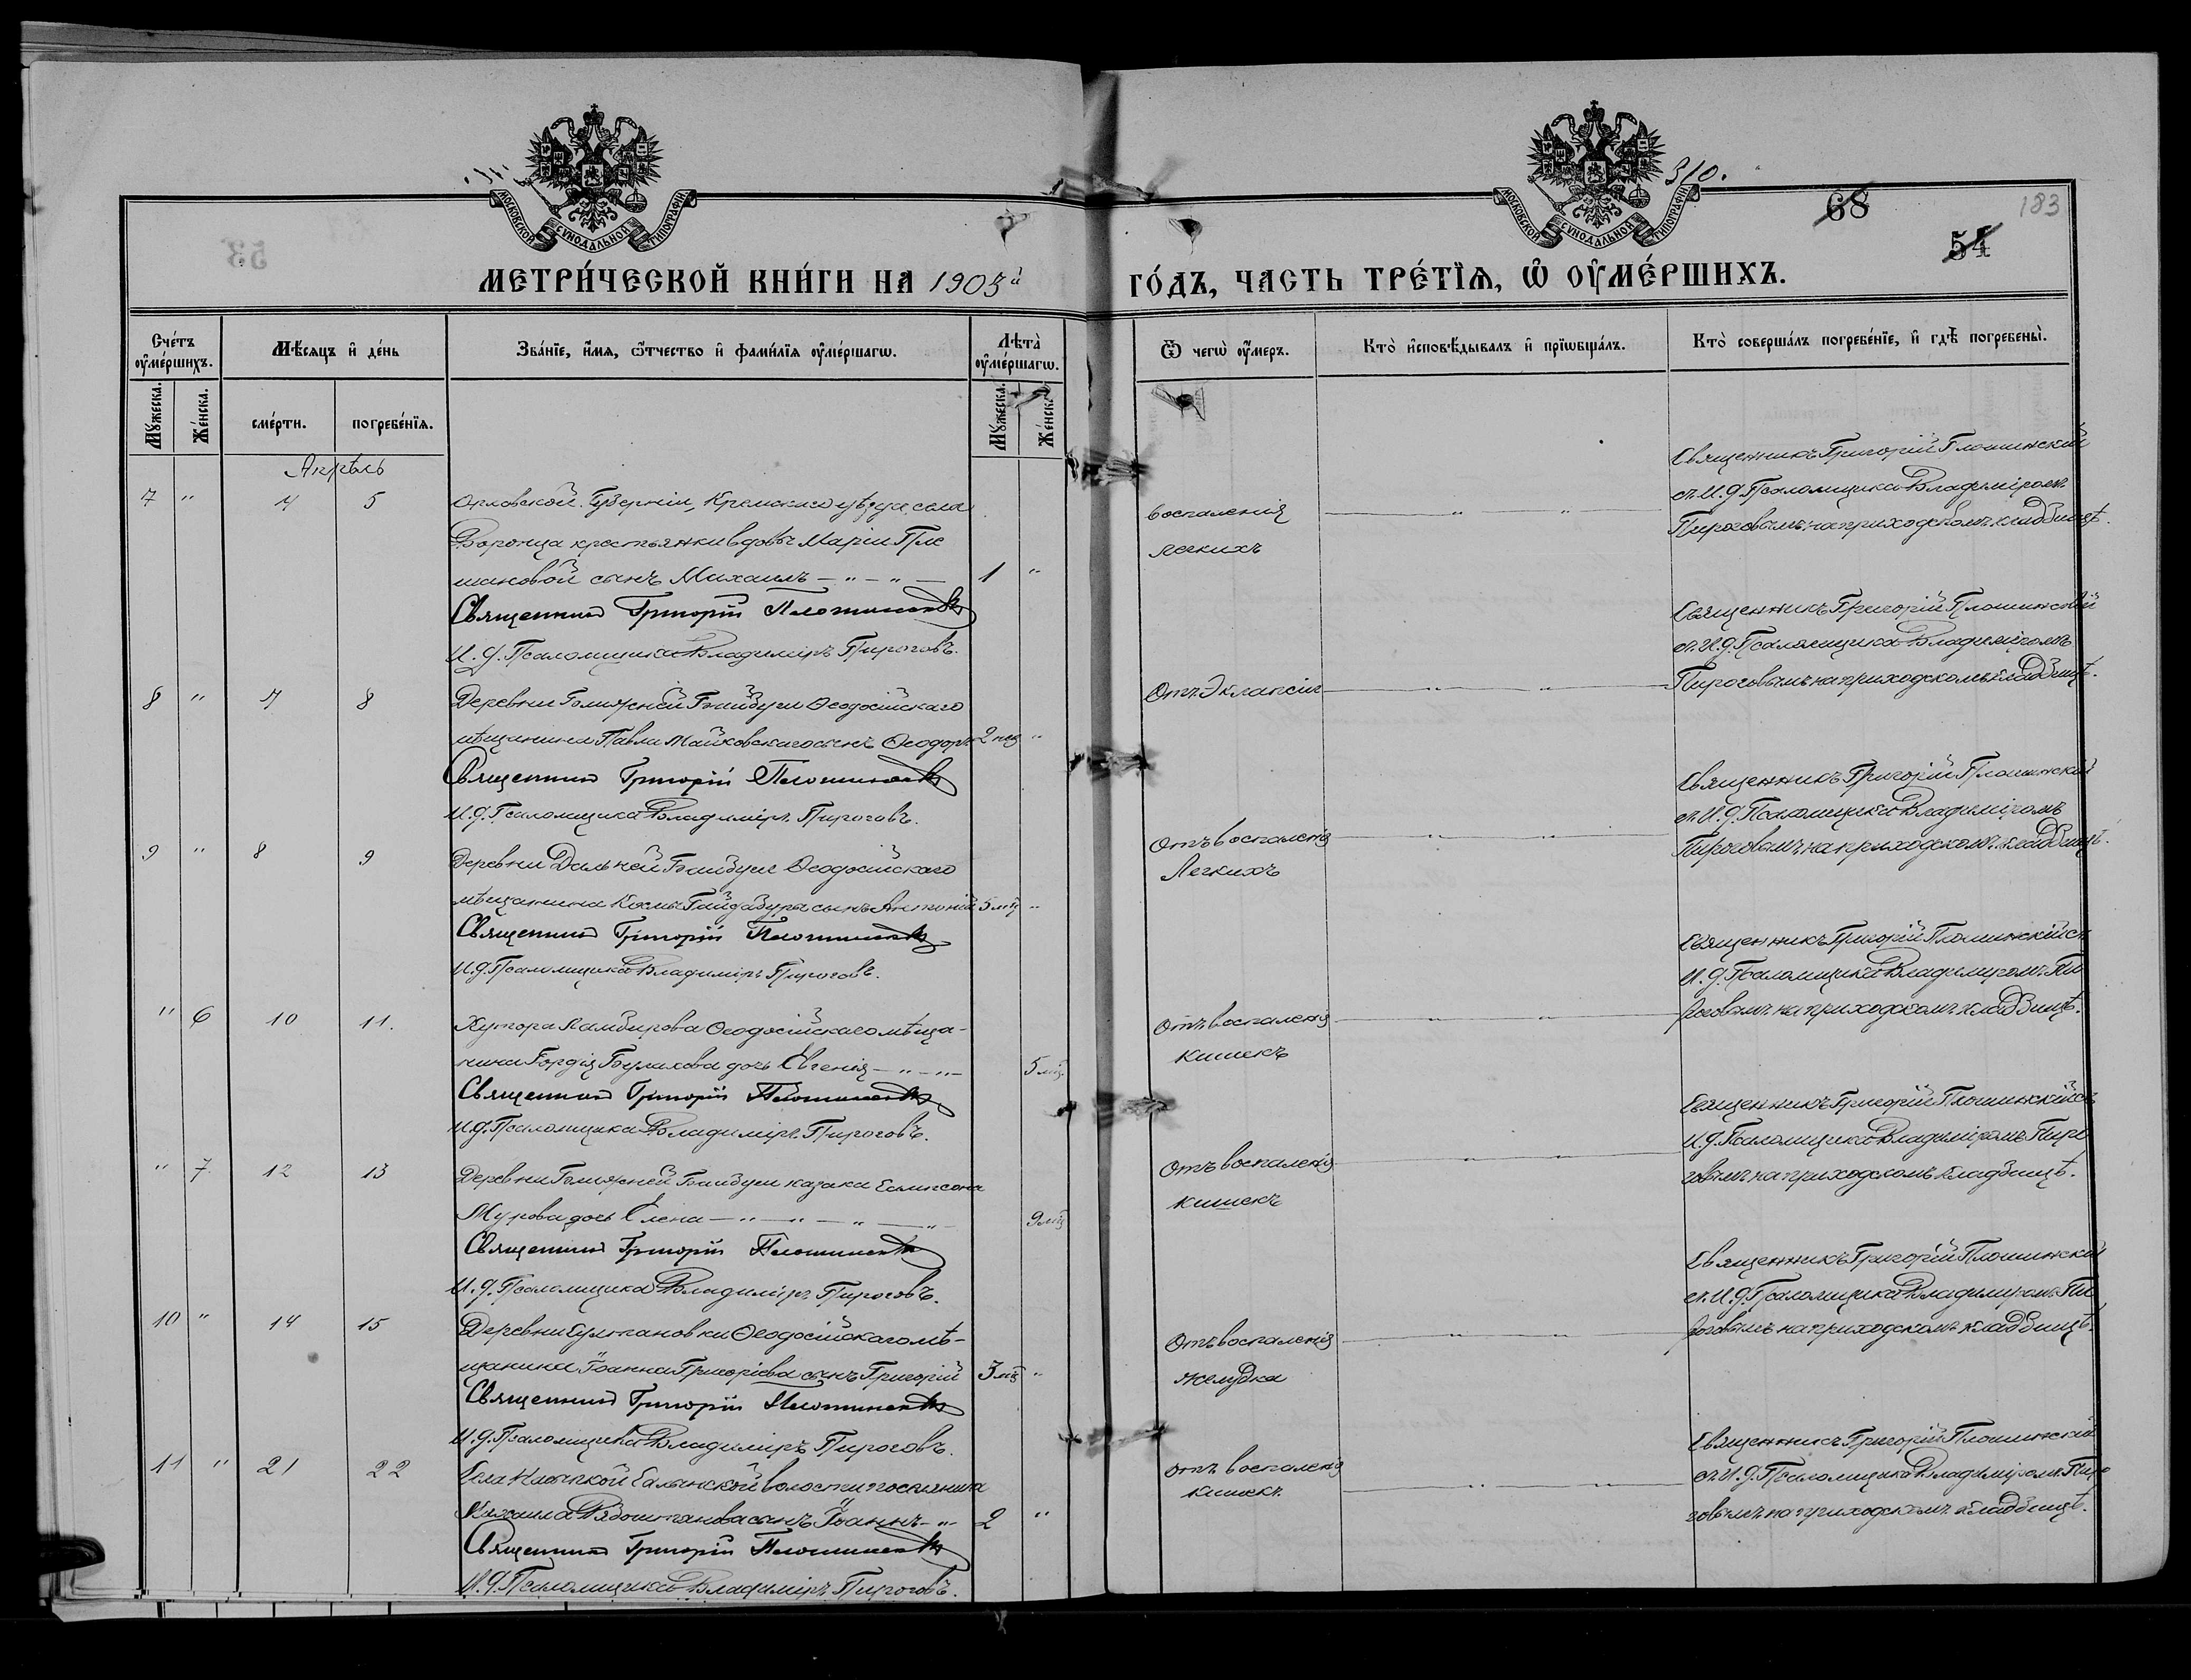 МОСКОВСКОЙ СѴНОДАЛЬНОЙ ТИПОГРАФІИ
МОСКОВСКОЙ СѴНОДАЛЬНОЙ ТИПОГРАФІИ
310.
68
183
54
53
МЕТРИ́ЧЕСКОЙ КНИ́ГИ НА 1903й
ГО́ДЪ, ЧАСТЬ ТРЕ́ТЇѦ, Ѡ҆ ОУ҆МЕ́РШИХЪ.
Сче́тъ оу҆ме́ршихъ.
Мѣ́сяцъ и҆ де́нь
Зва́нїе, и҆́мя, ѻ҆́тчество и҆ фами́лїя оу҆ме́ршагѡ.
Лѣта̀ оу҆ме́ршагѡ.
Ѿ чегѡ̀ оу҆́меръ.
Кто̀ и҆сповѣ́дывалъ и҆ прїѡбща́лъ.
Кто̀ соверша́лъ погребе́нїе, и҆ гдѣ̀ погребены̀.
Мꙋ́жеска.
Же́нска.
сме́рти.
погребе́нїя.
Мꙋ́жеска.
Же́нска.
Апрѣль
7 " 4 5
Орловской Губерніи, Кромскаго уѣзда села
Воронца крестьянки вдовы Маріи Пле
шановой сынъ Михаилъ — " — " — 1 "
Священникъ Григорій Плошинскій
И. д. Псаломщика Владиміръ Пироговъ.
воспаленія
легкихъ
Священникъ Григорій Плошинскій
съ И. д. Псаломщика Владиміромъ
Пироговымъ на приходскомъ кладбищѣ.
8 " 7 8
Деревни Ближней Байбуги Ѳеодосійскаго
мѣщанина Павла Майковскаго сынъ Ѳеодоръ 2 нед "
Священникъ Григорій Плошинскій
И. д. Псаломщика Владиміръ Пироговъ.
Отъ Эклапсіи
Священникъ Григорій Плошинскій
съ И. д. Псаломщика Владиміромъ
Пироговымъ на приходскомъ кладбищѣ.
9 " 8 9
Деревни Дальней Байбуги Ѳеодосійскаго
мѣщанина Космы Гайдабуры сынъ Антоній 5 мц "
Священникъ Григорій Плошинскій
И. д. Псаломщика Владиміръ Пироговъ.
Отъ воспаленія
Легкихъ
Священникъ Григорій Плошинскій
съ И. д. Псаломщика Владиміромъ
Пироговымъ на приходскомъ кладбищѣ.
" 6 10 11.
Хутора Ламбирова Ѳеодосійскаго мѣща-
нина Гордія Булахова дочь Евгенія — " — " — 5 мц.
Священникъ Григорій Плошинскій
И. д. Псаломщика Владиміръ Пироговъ.
Отъ воспаленія
Кишекъ
Священникъ Григорій Плошинскій съ
И. д. Псаломщика Владиміромъ Пи
роговымъ на приходскомъ кладбищѣ.
" 7 12 13
Деревни Ближней Байбуги казака
Мурова дочь Елена — " — " — " — " — 9 мц
Священникъ Григорій Плошинскій
И. д. Псаломщика Владиміръ Пироговъ.
Отъ воспаленія
кишекъ
Священникъ Григорій Плошинскій съ
И. д. Псаломщика Владиміромъ Пиро
говымъ на приходскомъ кладбищѣ.
10 " 14 15
Деревни Султановки Ѳеодосійскаго мѣ-
щанина Іоанна Григоріева сынъ Григорій 3 мц "
Священникъ Григорій Плошинскій
И. д. Псаломщика Владиміръ Пироговъ.
Отъ воспаленія
желудка
Священникъ Григорій Плошинскій
съ И. д. Псаломщика Владиміромъ Пи
роговымъ на приходскомъ кладбищѣ.
11 " 21 22
Села волости поселянина
Михаила сынъ Іоаннъ — " 2 "
Священникъ Григорій Плошинскій
И. д. Псаломщика Владиміръ Пироговъ.
отъ воспаленія
кишекъ
Священникъ Григорій Плошинскій
съ И. д. Псаломщика Владиміромъ Пиро
говымъ на приходскомъ кладбищѣ.